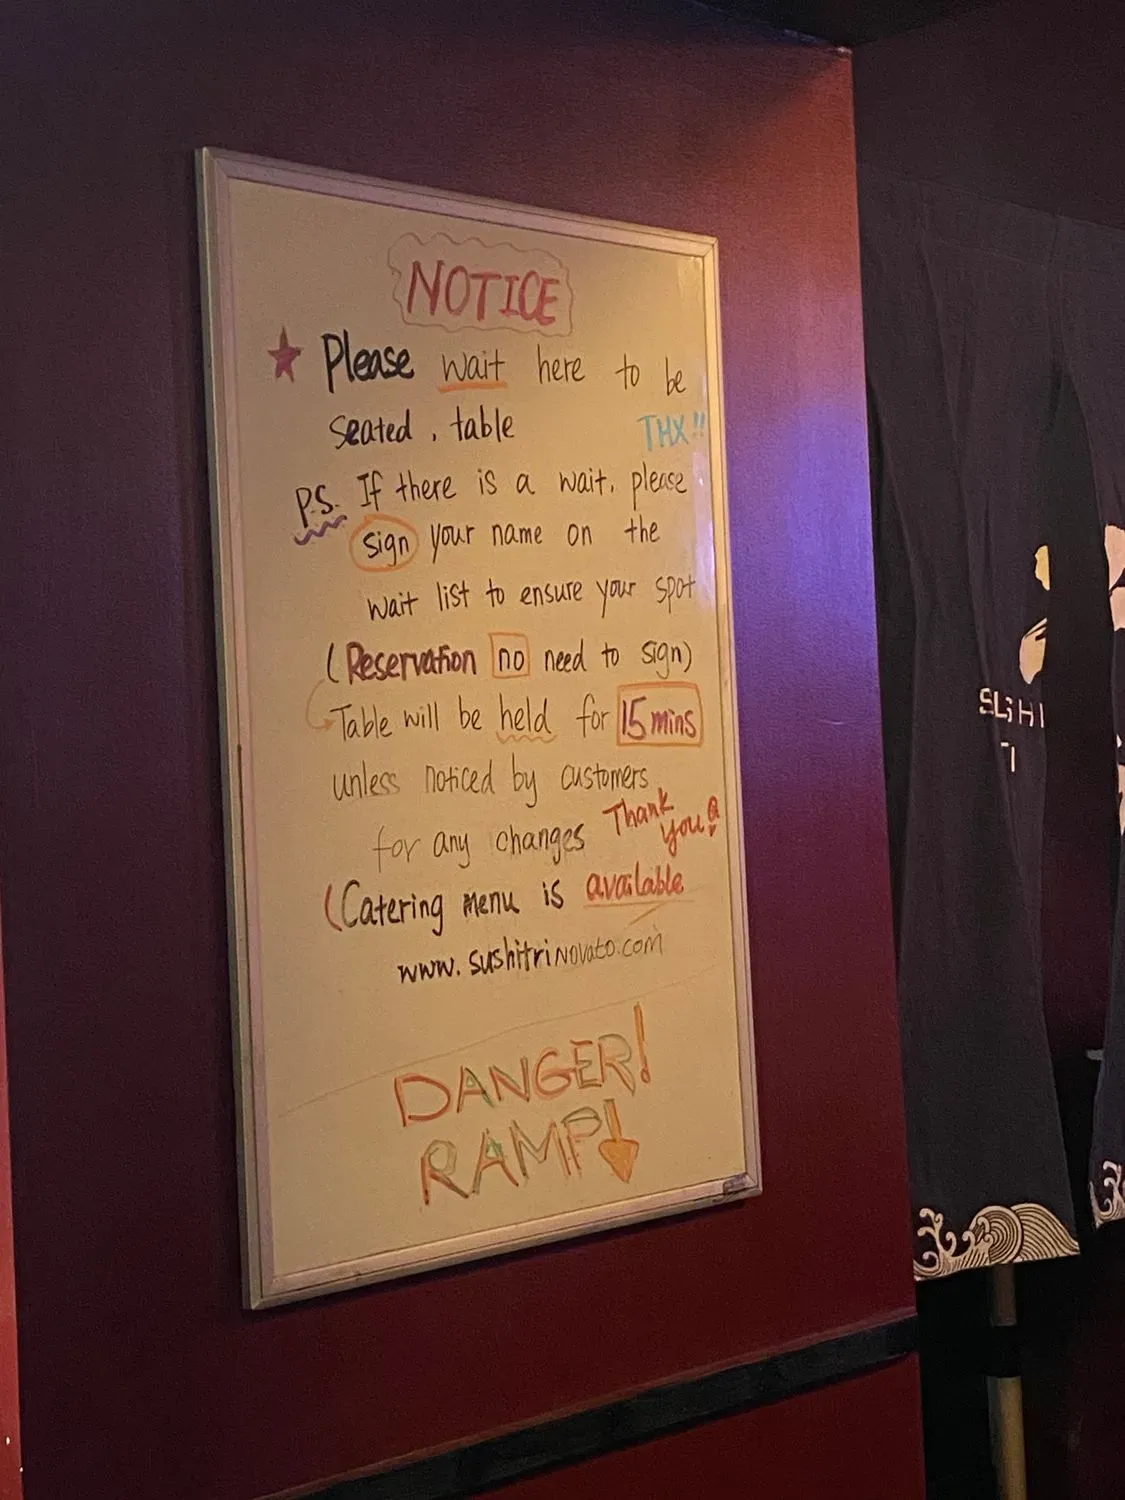 NOTICE
★ Please wait here to be
seated, table THX!!
P.S. If there is a wait, please
sign your name on the
wait list to ensure your spot
(Reservation no need to sign)
Table will be held for 15 mins
unless noticed by customers
for any changes Thank
you!
(Catering menu is available
www.sushitrinovato.com
DANGER!
RAMP!
SUSHI